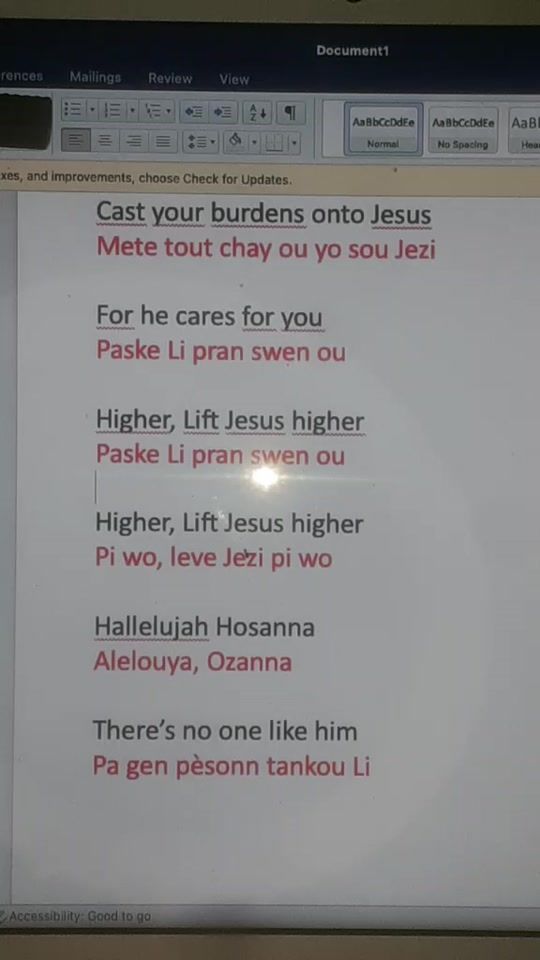 Document1
rences Mailings Review View
AaBbCcDdEe AaBbCcDdEe AaB
Normal No Spacing Hea
xes, and improvements, choose Check for Updates.
Cast your burdens onto Jesus
Mete tout chay ou yo sou Jezi
For he cares for you
Paske Li pran swen ou
Higher, Lift Jesus higher
Paske Li pran swen ou
Higher, Lift Jesus higher
Pi wo, leve Jezi pi wo
Hallelujah Hosanna
Alelouya, Ozanna
There's no one like him
Pa gen pèsonn tankou Li
Accessibility: Good to go